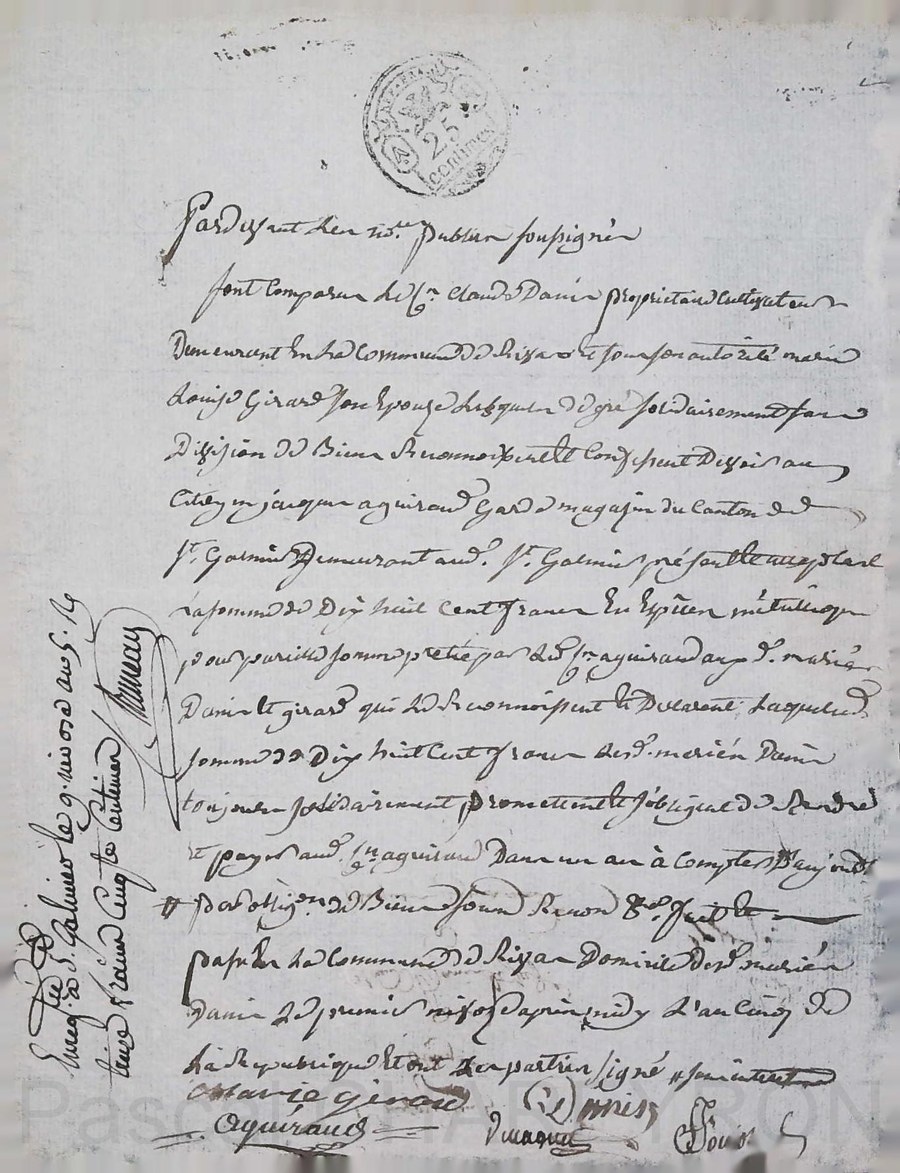 25
centimes
Pardevant les not.re publics soussignés
sont comparus le C.en Claude Danis propriétaire cultivateur
Demeurant En la Commune de Rivas et sous son autorité marie
Louise Girard son Epouse lesquels de gré solidairement sans
Division de Biens Reconnoissent et Confessent Devoir au
Citoyen jacques aguiraud Garde magasin du Canton de
S.t Galmier Demeurant aud. S.t Galmier présent et acceptant
la somme de Dix huit Cent francs En Espèces métallique
pour pareille somme pretée par led. C.en aguiraud aux d. mariés
Danis et girard qui le Reconnoissent et Declarent Laquelle
somme de Dix huit Cent francs lesd. mariés Danis
toujours solidairement promettent et s'obligent de Rendre
et payer aud. C.en aguiraud Dans un an à Compter D'aujourd'
# par obligon de Biens soumd Renond &a. fait et
passé En la Commune de Rivas Domicile desd. mariés
Danis le premier nivose après midy L'an Cinq de
la Republique et ont les parties signé # sans interet
Marie gerard
Danis
Aguiraud
Enreg. à S. Galmier le 9. nivose an 5. R
francs Cinquante Centimes
Pascal CHAMBEYRON